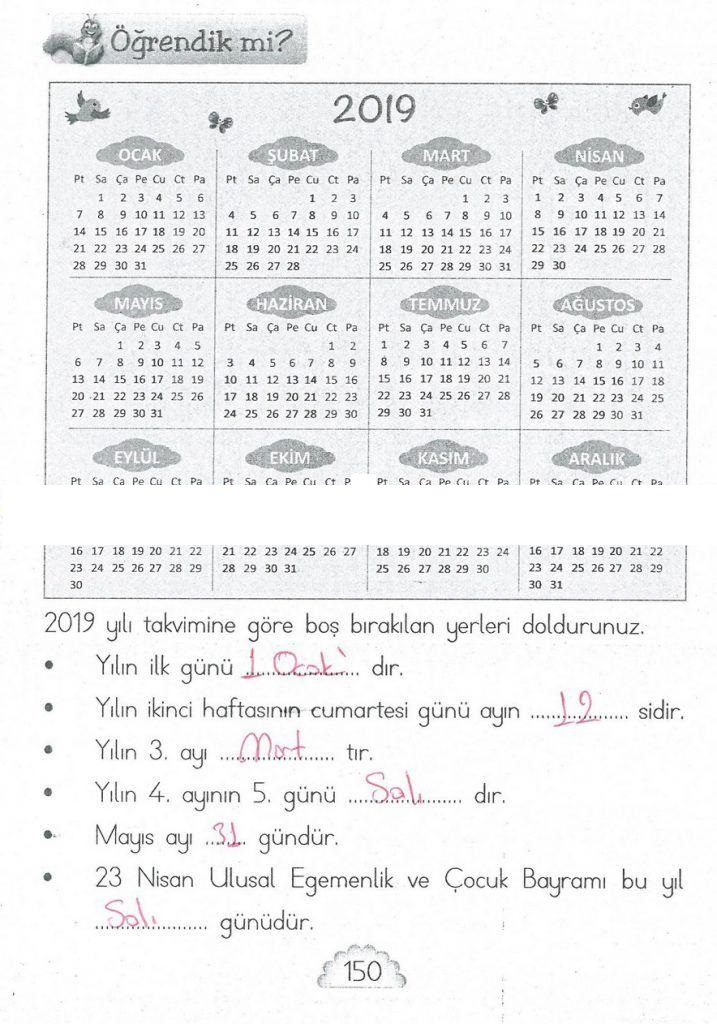 Öğrendik mi?
2019
OCAK ŞUBAT MART NİSAN
Pt Sa Ça Pe Cu Ct Pa Pt Sa Ça Pe Cu Ct Pa Pt Sa Ça Pe Cu Ct Pa Pt Sa Ça Pe Cu Ct Pa
1 2 3 4 5 6 1 2 3 1 2 3 1 2 3 4 5 6 7
7 8 9 10 11 12 13 4 5 6 7 8 9 10 4 5 6 7 8 9 10 8 9 10 11 12 13 14
14 15 16 17 18 19 20 11 12 13 14 15 16 17 11 12 13 14 15 16 17 15 16 17 18 19 20 21
21 22 23 24 25 26 27 18 19 20 21 22 23 24 18 19 20 21 22 23 24 22 23 24 25 26 27 28
28 29 30 31 25 26 27 28 25 26 27 28 29 30 31 29 30
MAYIS HAZİRAN TEMMUZ AĞUSTOS
Pt Sa Ça Pe Cu Ct Pa Pt Sa Ça Pe Cu Ct Pa Pt Sa Ça Pe Cu Ct Pa Pt Sa Ça Pe Cu Ct Pa
1 2 3 4 5 1 2 1 2 3 4 5 6 7 1 2 3 4
6 7 8 9 10 11 12 3 4 5 6 7 8 9 8 9 10 11 12 13 14 5 6 7 8 9 10 11
13 14 15 16 17 18 19 10 11 12 13 14 15 16 15 16 17 18 19 20 21 12 13 14 15 16 17 18
20 21 22 23 24 25 26 17 18 19 20 21 22 23 22 23 24 25 26 27 28 19 20 21 22 23 24 25
27 28 29 30 31 24 25 26 27 28 29 30 29 30 31 26 27 28 29 30 31
EYLÜL EKİM KASIM ARALIK
Pt Sa Ça Pe Cu Ct Pa Pt Sa Ça Pe Cu Ct Pa Pt Sa Ça Pe Cu Ct Pa Pt Sa Ça Pe Cu Ct Pa
16 17 18 19 20 21 22 21 22 23 24 25 26 27 18 19 20 21 22 23 24 16 17 18 19 20 21 22
23 24 25 26 27 28 29 28 29 30 31 25 26 27 28 29 30 23 24 25 26 27 28 29
30 30 31
2019 yılı takvimine göre boş bırakılan yerleri doldurunuz.
• Yılın ilk günü 1 Ocak' dır.
• Yılın ikinci haftasının cumartesi günü ayın 12 sidir.
• Yılın 3. ayı Mart tır.
• Yılın 4. ayının 5. günü Salı dır.
• Mayıs ayı 31 gündür.
• 23 Nisan Ulusal Egemenlik ve Çocuk Bayramı bu yıl
Salı günüdür.
150